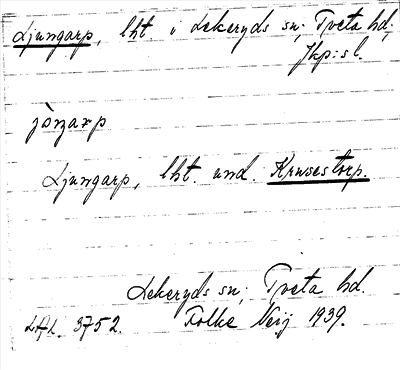 Ljungarp, lht. i Lekeryds sn; Tveta hd;
Jkp:s l.
jòŋarp
Ljungarp, lht. und. Krusestorp.
Lekeryds sn; Tveta hd.
LAL. 3752. Folke Neij 1939.